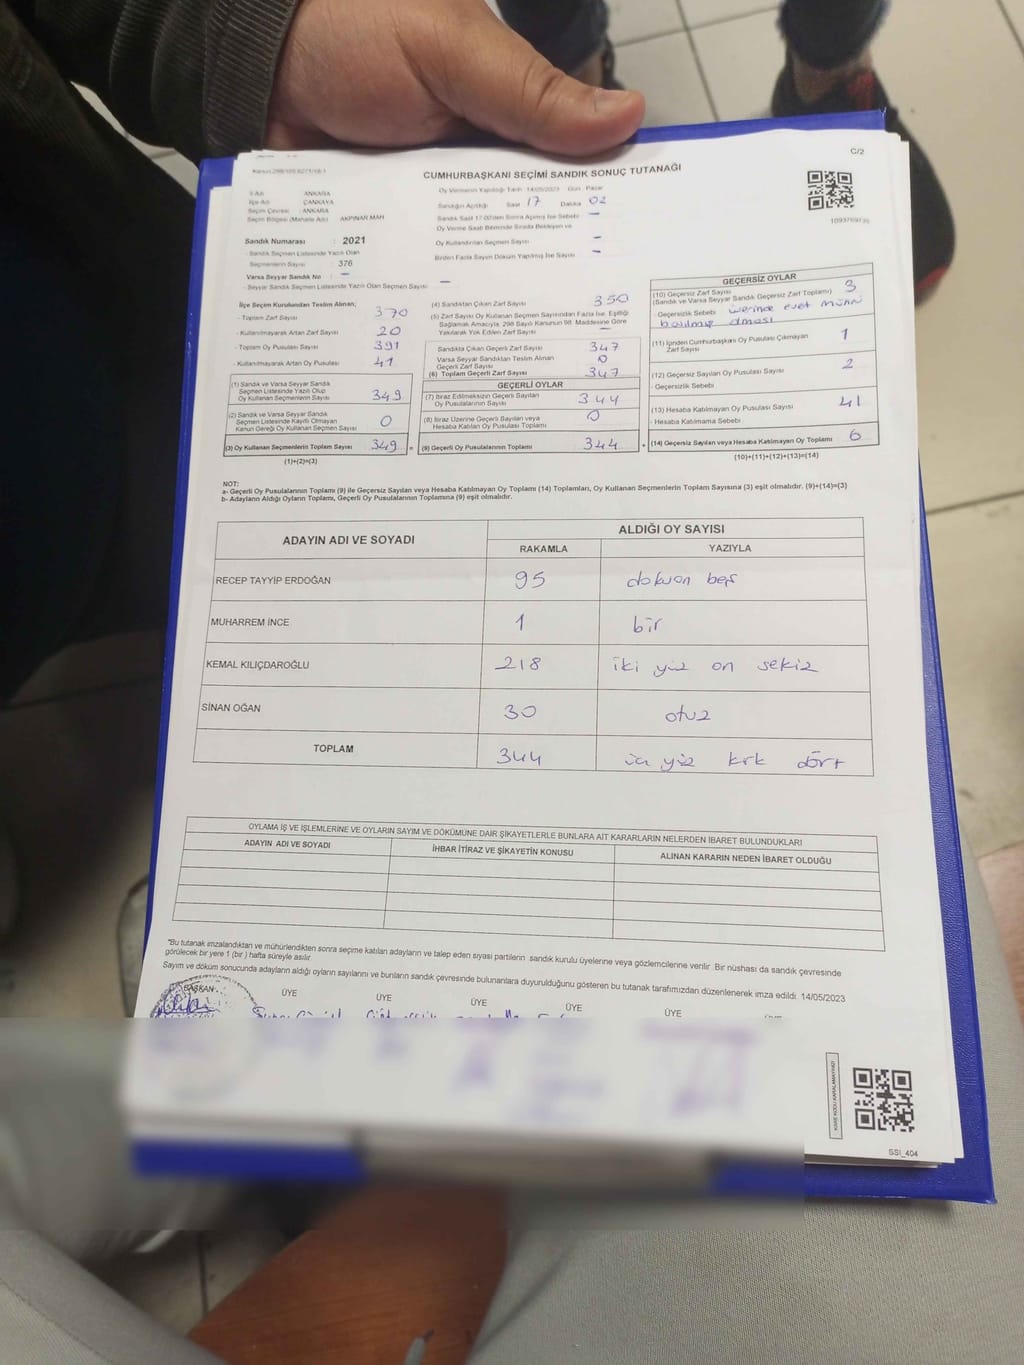 C/2
CUMHURBAŞKANI SEÇİMİ SANDIK SONUÇ TUTANAĞI
İl Adı : ANKARA
İlçe Adı : ÇANKAYA
Seçim Çevresi : ANKARA
Seçim Bölgesi (Mahalle Adı) : AKPINAR MAH
Sandık Numarası : 2021
- Sandık Seçmen Listesinde Yazılı Olan
Seçmenlerin Sayısı : 376
Varsa Seyyar Sandık No : -
- Seyyar Sandık Seçmen Listesinde Yazılı Olan Seçmen Sayısı : -
Oy Vermenin Yapıldığı Tarih 14/05/2023 Gün Pazar
Sandığın Açıldığı Saat 17 Dakika 02
Sandık Saat 17:00'den Sonra Açılmış İse Sebebi -
Oy Verme Saati Bitiminde Sırada Bekleyen ve
Oy Kullandırılan Seçmen Sayısı -
Birden Fazla Sayım Döküm Yapılmış İse Sayısı -
İlçe Seçim Kurulundan Teslim Alınan;
- Toplam Zarf Sayısı 370
- Kullanılmayarak Artan Zarf Sayısı 20
- Toplam Oy Pusulası Sayısı 391
- Kullanılmayarak Artan Oy Pusulası 41
(1) Sandık ve Varsa Seyyar Sandık
Seçmen Listesinde Yazılı Olup
Oy Kullanan Seçmenlerin Sayısı 349
(2) Sandık ve Varsa Seyyar Sandık
Seçmen Listesinde Kayıtlı Olmayan
Kanun Gereği Oy Kullanan Seçmen Sayısı 0
(3) Oy Kullanan Seçmenlerin Toplam Sayısı 349 =
(1)+(2)=(3)
(4) Sandıktan Çıkan Zarf Sayısı 350
(5) Zarf Sayısı Oy Kullanan Seçmen Sayısından Fazla İse, Eşitliği
Sağlamak Amacıyla, 298 Sayılı Kanunun 98. Maddesine Göre
Yakılarak Yok Edilen Zarf Sayısı -
Sandıkta Çıkan Geçerli Zarf Sayısı 347
Varsa Seyyar Sandıktan Teslim Alınan
Geçerli Zarf Sayısı 0
(6) Toplam Geçerli Zarf Sayısı 347
GEÇERLİ OYLAR
(7) İtiraz Edilmeksizin Geçerli Sayılan
Oy Pusulalarının Sayısı 344
(8) İtiraz Üzerine Geçerli Sayılan veya
Hesaba Katılan Oy Pusulası Toplamı 0
(9) Geçerli Oy Pusulalarının Toplamı 344 +
GEÇERSİZ OYLAR
(10) Geçersiz Zarf Sayısı 3
(Sandık ve Varsa Seyyar Sandık Geçersiz Zarf Toplamı)
- Geçersizlik Sebebi üzerinde evet mührü
basılmış olması
(11) İçinden Cumhurbaşkanı Oy Pusulası Çıkmayan
Zarf Sayısı 1
(12) Geçersiz Sayılan Oy Pusulası Sayısı 2
- Geçersizlik Sebebi
(13) Hesaba Katılmayan Oy Pusulası Sayısı 41
- Hesaba Katılmama Sebebi
(14) Geçersiz Sayılan veya Hesaba Katılmayan Oy Toplamı 6
(10)+(11)+(12)+(13)=(14)
NOT:
a- Geçerli Oy Pusulalarının Toplamı (9) ile Geçersiz Sayılan veya Hesaba Katılmayan Oy Toplamı (14) Toplamları, Oy Kullanan Seçmenlerin Toplam Sayısına (3) eşit olmalıdır. (9)+(14)=(3)
b- Adayların Aldığı Oyların Toplamı, Geçerli Oy Pusulalarının Toplamına (9) eşit olmalıdır.
ADAYIN ADI VE SOYADI ALDIĞI OY SAYISI
RAKAMLA YAZIYLA
RECEP TAYYİP ERDOĞAN 95 doksan beş
MUHARREM İNCE 1 bir
KEMAL KILIÇDAROĞLU 218 iki yüz on sekiz
SİNAN OĞAN 30 otuz
TOPLAM 344 üç yüz kırk dört
OYLAMA İŞ VE İŞLEMLERİNE VE OYLARIN SAYIM VE DÖKÜMÜNE DAİR ŞİKAYETLERLE BUNLARA AİT KARARLARIN NELERDEN İBARET BULUNDUKLARI
ADAYIN ADI VE SOYADI İHBAR İTİRAZ VE ŞİKAYETİN KONUSU ALINAN KARARIN NEDEN İBARET OLDUĞU
"Bu tutanak imzalandıktan ve mühürlendikten sonra seçime katılan adayların ve talep eden siyasi partilerin sandık kurulu üyelerine veya gözlemcilerine verilir. Bir nüshası da sandık çevresinde
görülecek bir yere 1 (bir) hafta süreyle asılır.
Sayım ve döküm sonucunda adayların aldığı oyların sayılarını ve bunların sandık çevresinde bulunanlara duyurulduğunu gösteren bu tutanak tarafımızdan düzenlenerek imza edildi. 14/05/2023
BAŞKAN ÜYE ÜYE ÜYE ÜYE ÜYE
KARE KODU KARALAMAYINIZ!
SSI_404